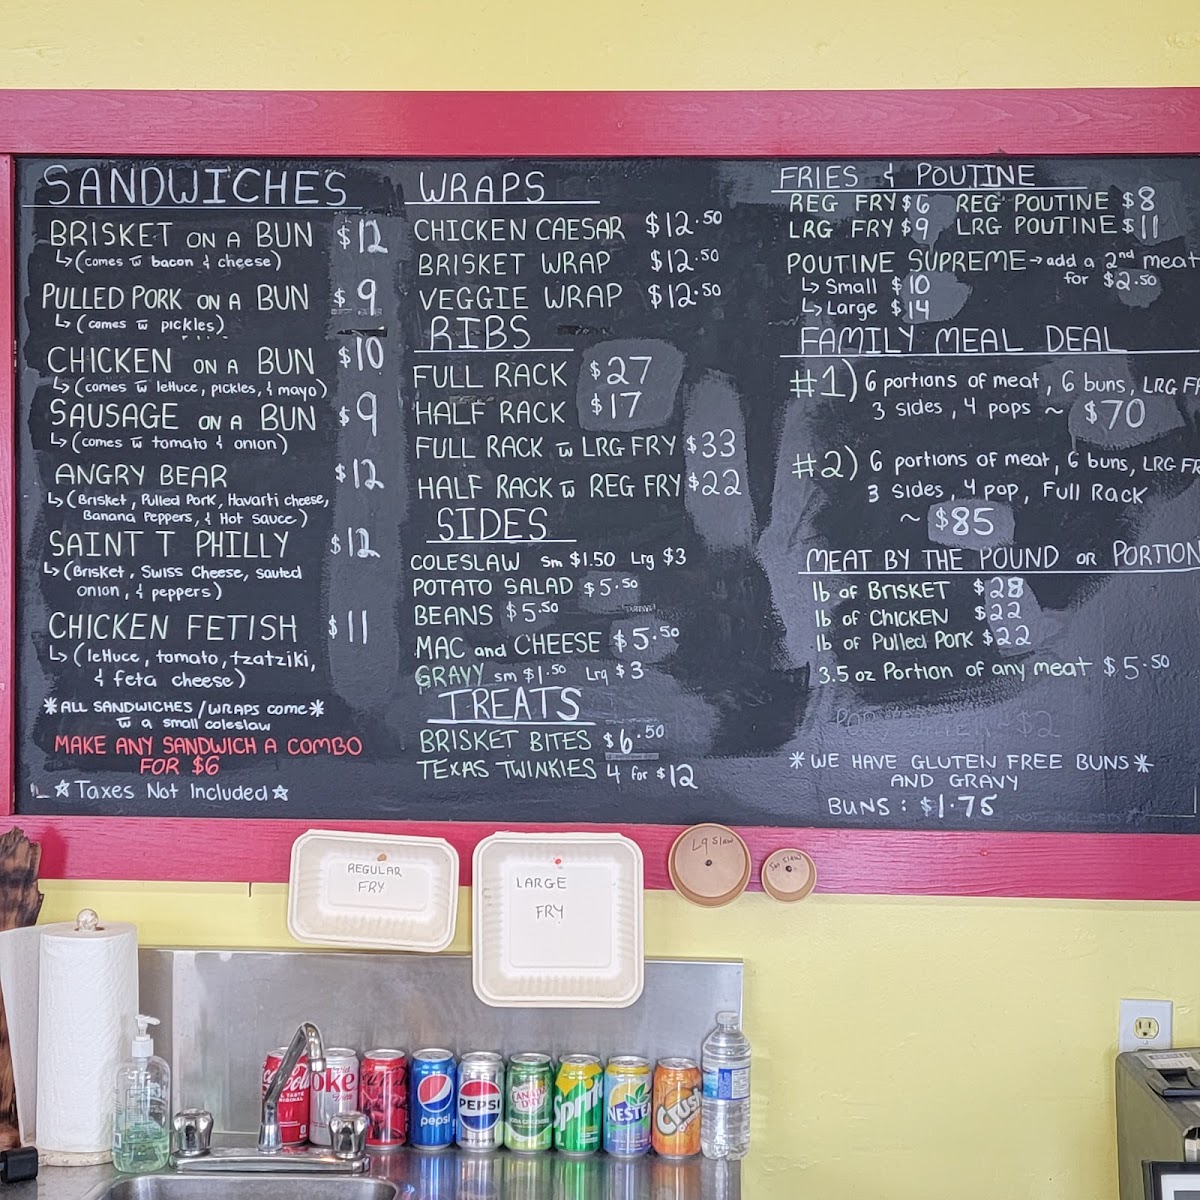 SANDWICHES
BRISKET ON A BUN $12
↳ (comes w̄ bacon & cheese)
PULLED PORK ON A BUN $9
↳ (comes w̄ pickles)
CHICKEN ON A BUN $10
↳ (comes w̄ lettuce, pickles, & mayo)
SAUSAGE ON A BUN $9
↳ (comes w̄ tomato & onion)
ANGRY BEAR $12
↳ (Brisket, Pulled Pork, Havarti cheese,
Banana Peppers, & Hot Sauce)
SAINT T PHILLY $12
↳ (Brisket, Swiss Cheese, sauted
onion, & peppers)
CHICKEN FETISH $11
↳ (lettuce, tomato, tzatziki,
& feta cheese)
*ALL SANDWICHES/WRAPS come*
w̄ a small coleslaw
MAKE ANY SANDWICH A COMBO
FOR $6
☆Taxes Not Included☆
WRAPS
CHICKEN CAESAR $12.50
BRISKET WRAP $12.50
VEGGIE WRAP $12.50
RIBS
FULL RACK $27
HALF RACK $17
FULL RACK w̄ LRG FRY $33
HALF RACK w̄ REG FRY $22
SIDES
COLESLAW Sm $1.50 Lrg $3
POTATO SALAD $5.50
BEANS $5.50
MAC and CHEESE $5.50
GRAVY sm $1.50 Lrg $3
TREATS
BRISKET BITES $6.50
TEXAS TWINKIES 4 for $12
FRIES & POUTINE
REG FRY $6 REG POUTINE $8
LRG FRY $9 LRG POUTINE $11
POUTINE SUPREME → add a 2nd meat
for $2.50
↳ Small $10
↳ Large $14
FAMILY MEAL DEAL
#1) 6 portions of meat, 6 buns, LRG
3 sides, 4 pops ~ $70
#2) 6 portions of meat, 6 buns, LRG
3 sides, 4 pop, Full Rack
~ $85
MEAT BY THE POUND OR PORTION
lb of BRISKET $28
lb of CHICKEN $22
lb of Pulled Pork $22
3.5 oz Portion of any meat $5.50
$2
*WE HAVE GLUTEN FREE BUNS*
AND GRAVY
BUNS: $1.75
REGULAR
FRY
LARGE
FRY
Lg Slaw
Sm Slaw
oke
pepsi
PEPSI
CANADA DRY
Sprite
NESTEA
Crush